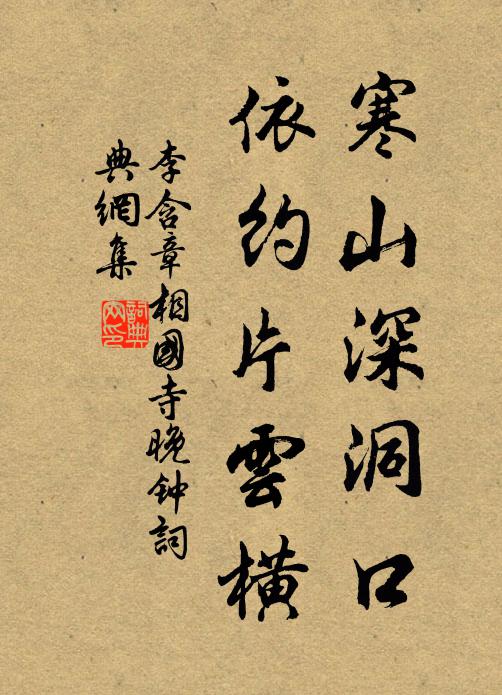 寒山深洞口
依約片雲橫
李含章相國寺晚钟詞
典網集
詞典网印